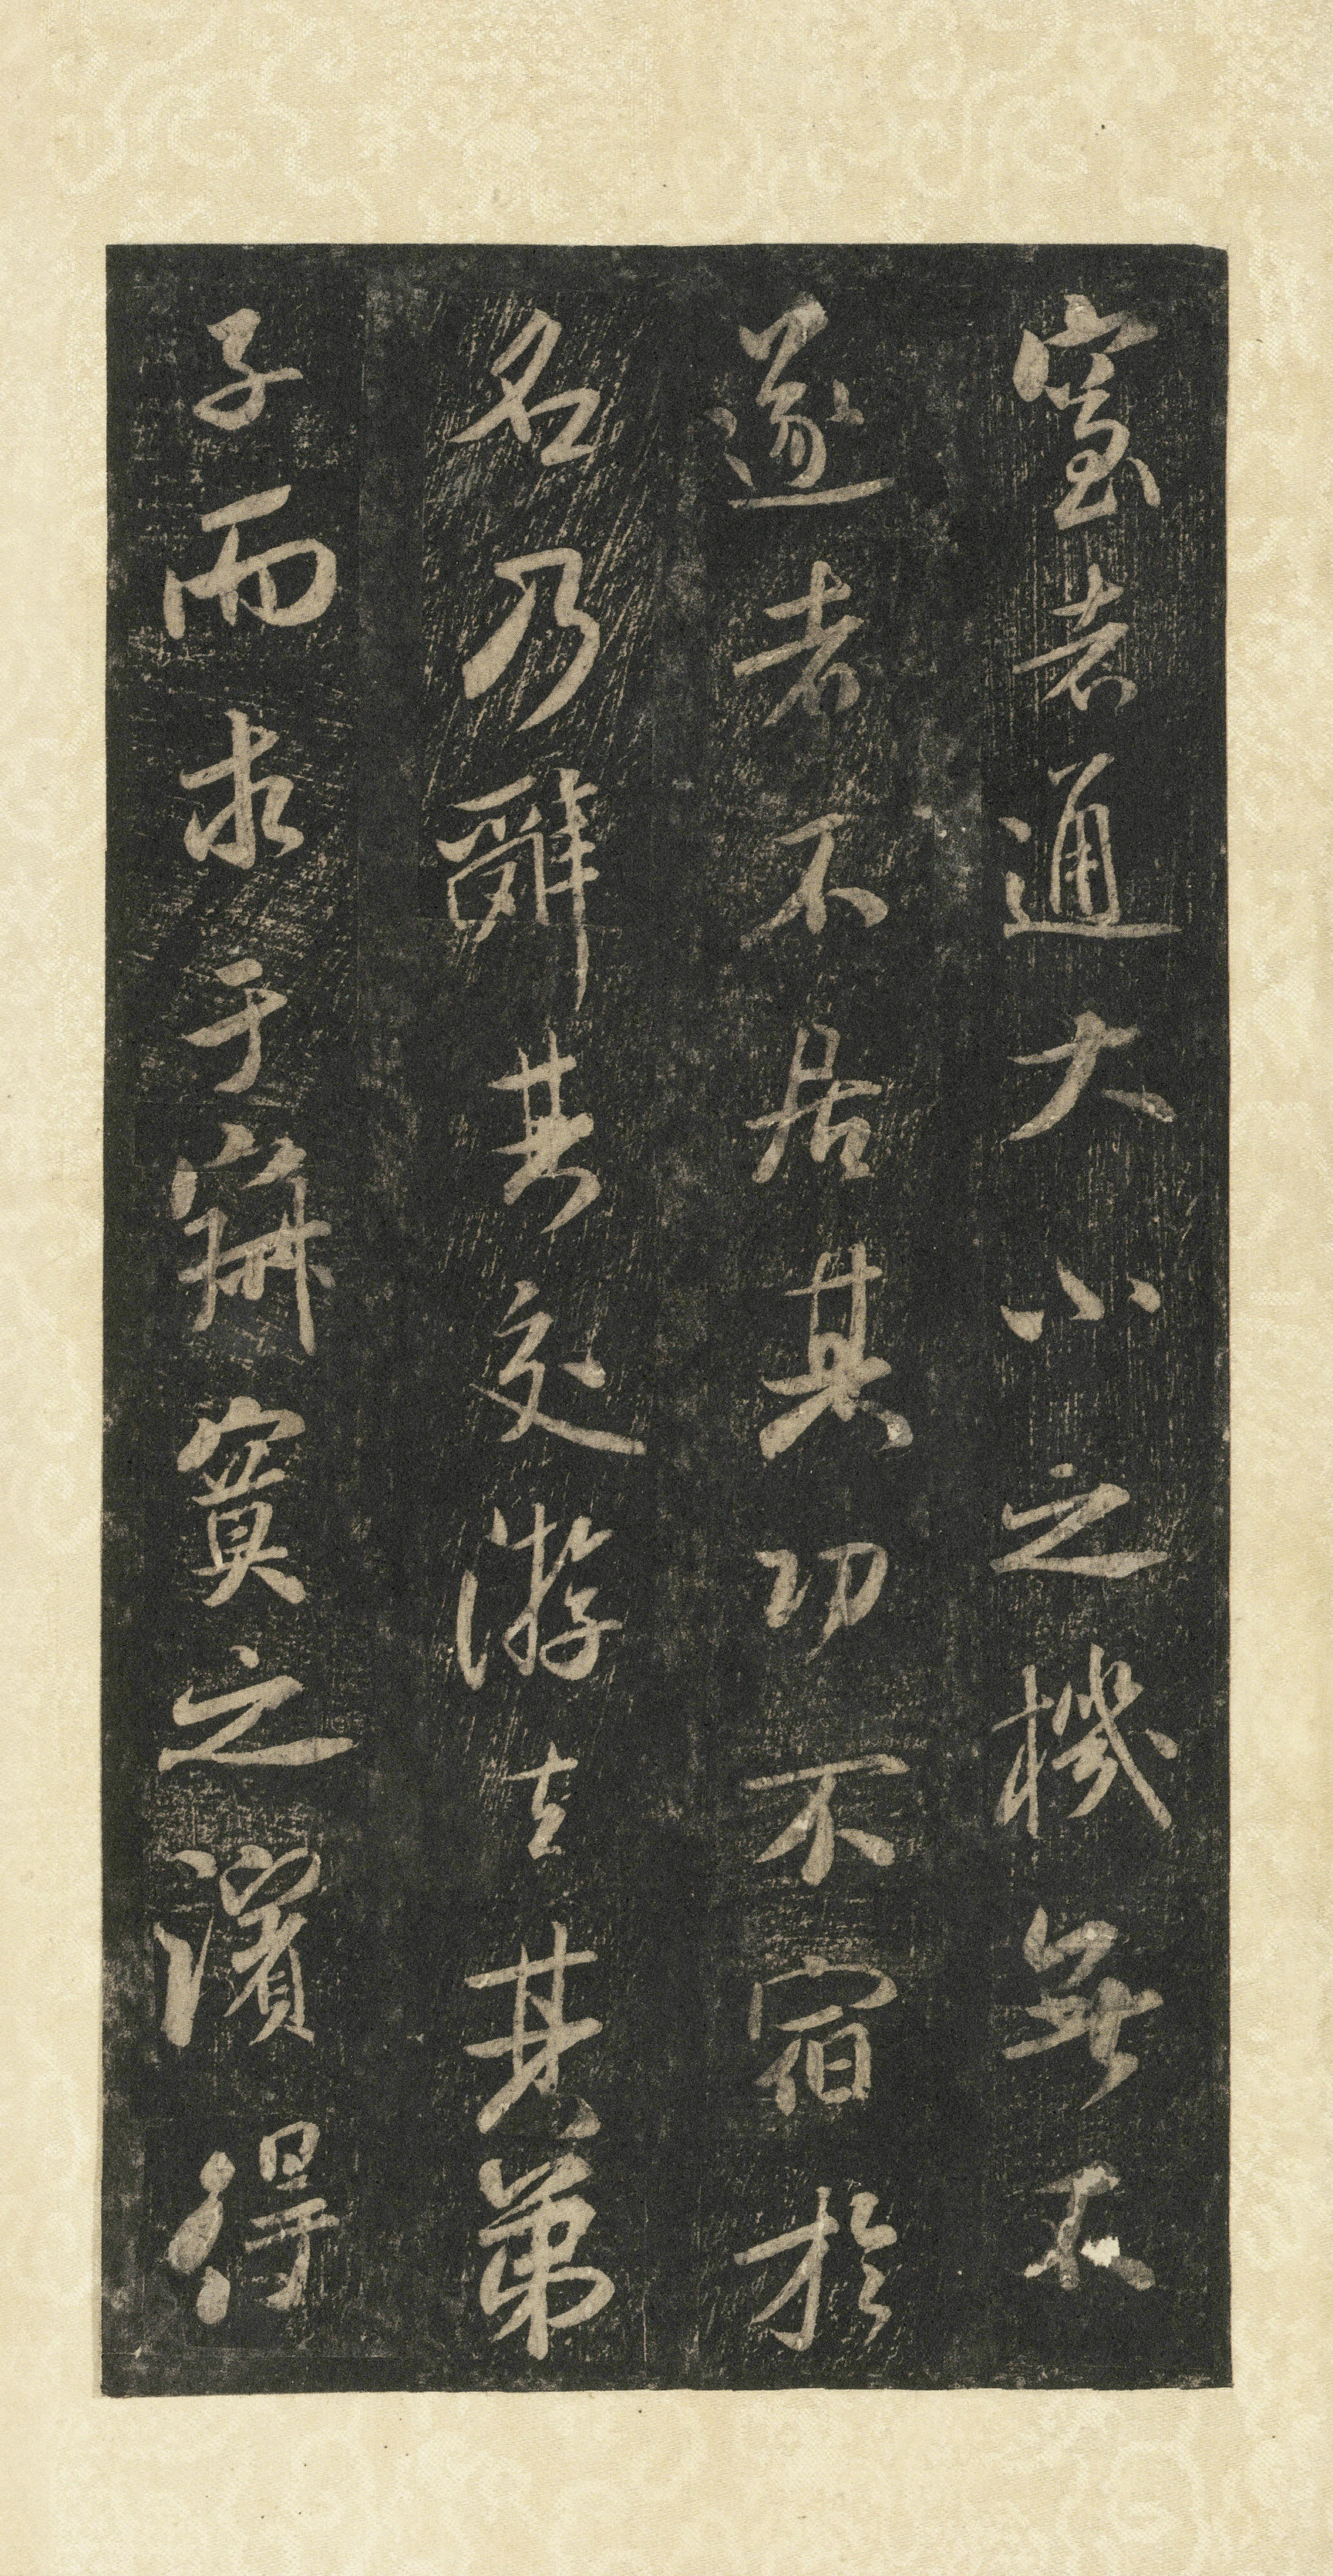 窒者通大小之機無不
遂者不居其功不宿於
名乃辭其交游去其弟
子而求于之濱得